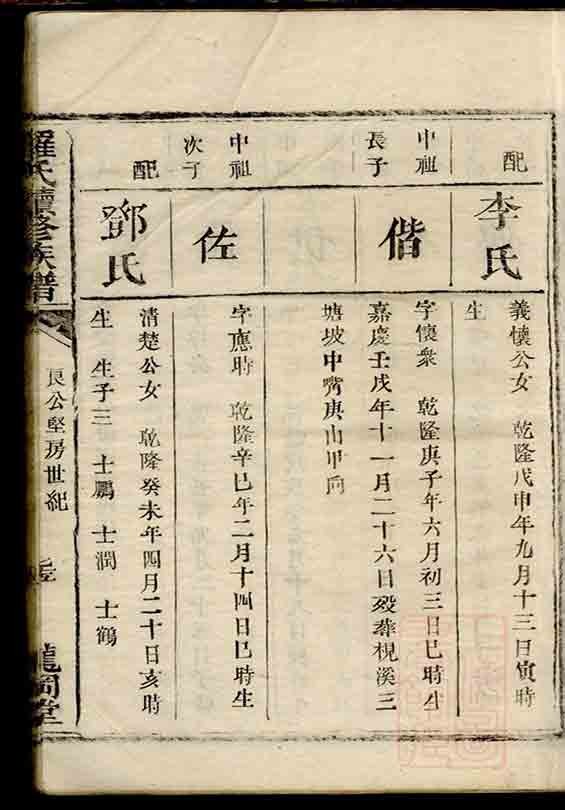 配
李氏
義懷公女 乾隆戊申年九月十三日寅時
生
中祖
長子
偕
字懷衆 乾隆庚子年六月初三日巳時生
嘉慶壬戌年十一月二十六日歿葬梘溪三
塘坡中嘴庚山甲向
中祖
次子
佐
字應時 乾隆辛巳年二月十四日巳時生
配
鄧氏
清楚公女 乾隆癸未年四月二十日亥時
生 生子三 士鵬 士潤 士鶴
羅氏續修族譜
良公堅房世紀
龍岡堂